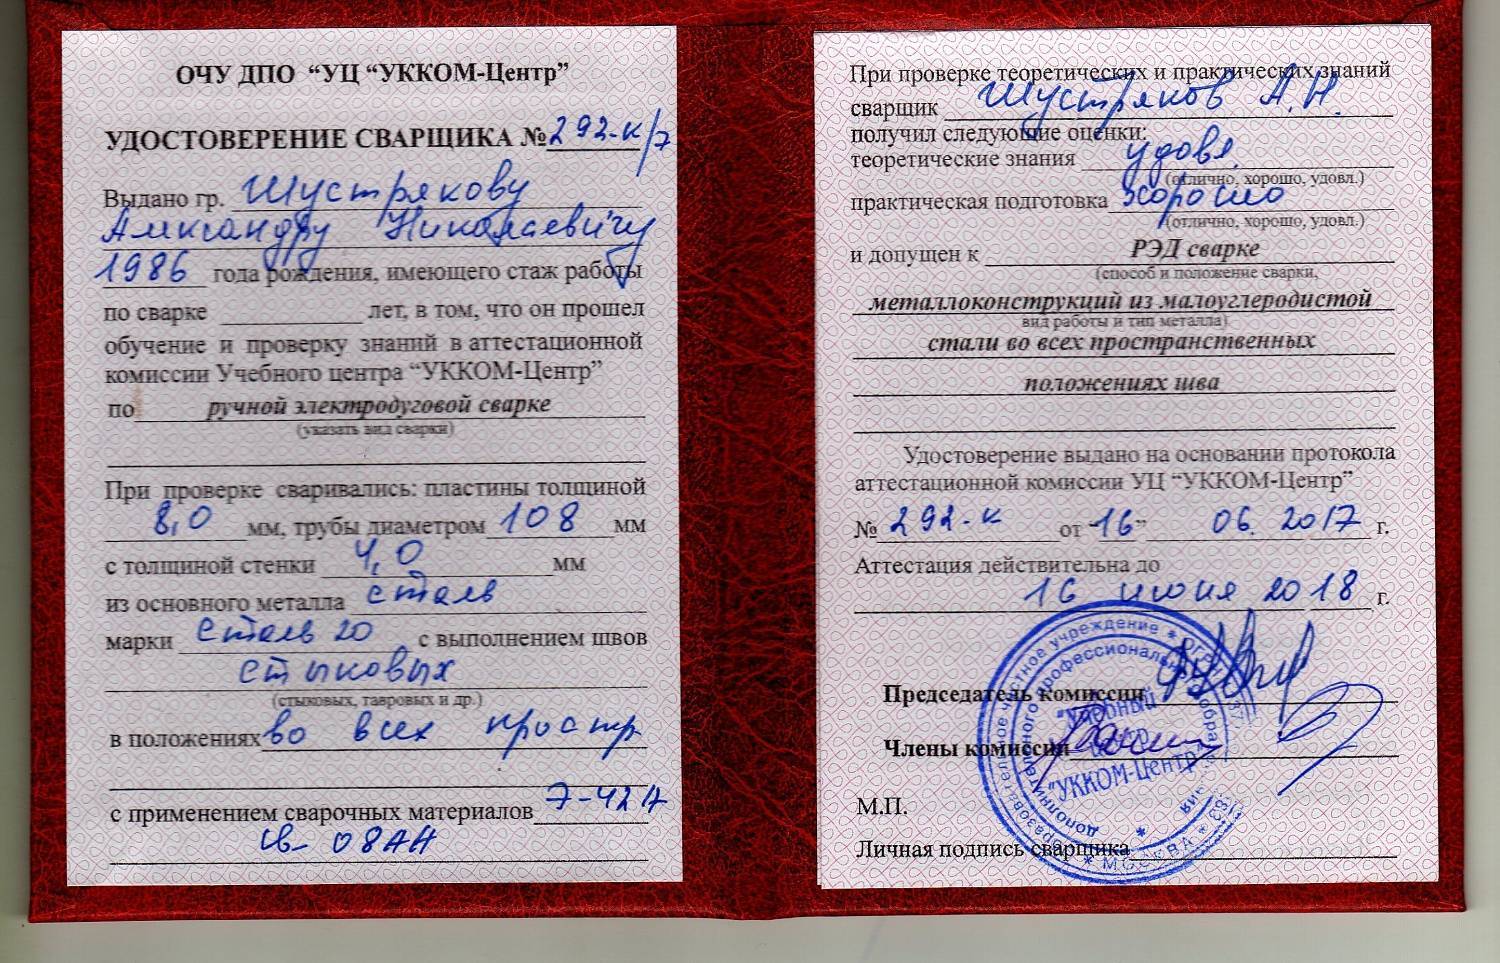 ОЧУ ДПО “УЦ “УККОМ-Центр”
УДОСТОВЕРЕНИЕ СВАРЩИКА № 292-к/7
Выдано гр. Шустрякову
Александру Николаевичу
1986 года рождения, имеющего стаж работы
по сварке ____ лет, в том, что он прошел
обучение и проверку знаний в аттестационной
комиссии Учебного центра “УККОМ-Центр”
по ручной электродуговой сварке
(указать вид сварки)
При проверке сваривались: пластины толщиной
8,0 мм, трубы диаметром 108 мм
с толщиной стенки 4,0 мм
из основного металла сталь
марки Сталь 20 с выполнением швов
стыковых
(стыковых, тавровых и др.)
в положениях во всех простр.
с применением сварочных материалов Э-42А
Св 08АН
При проверке теоретических и практических знаний
сварщик Шустряков А.Н.
получил следующие оценки:
теоретические знания удовл.
(отлично, хорошо, удовл.)
практическая подготовка хорошо
(отлично, хорошо, удовл.)
и допущен к РЭД сварке
(способ и положение сварки,
металлоконструкций из малоуглеродистой
вид работы и тип металла)
стали во всех пространственных
положениях шва
Удостоверение выдано на основании протокола
аттестационной комиссии УЦ “УККОМ-Центр”
№ 292-к от “16” 06. 2017 г.
Аттестация действительна до
16 июня 2018 г.
Председатель комиссии
Члены комиссии
М.П.
Личная подпись сварщика
частное учреждение
дополнительного профессионального
"Учебный
центр
"УККОМ-Центр"
* МОСКВА *